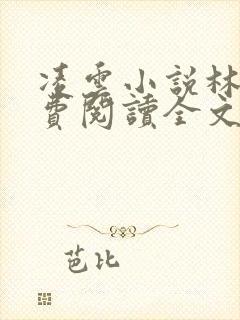 凌雲小説林
費閱讀全文
芭比